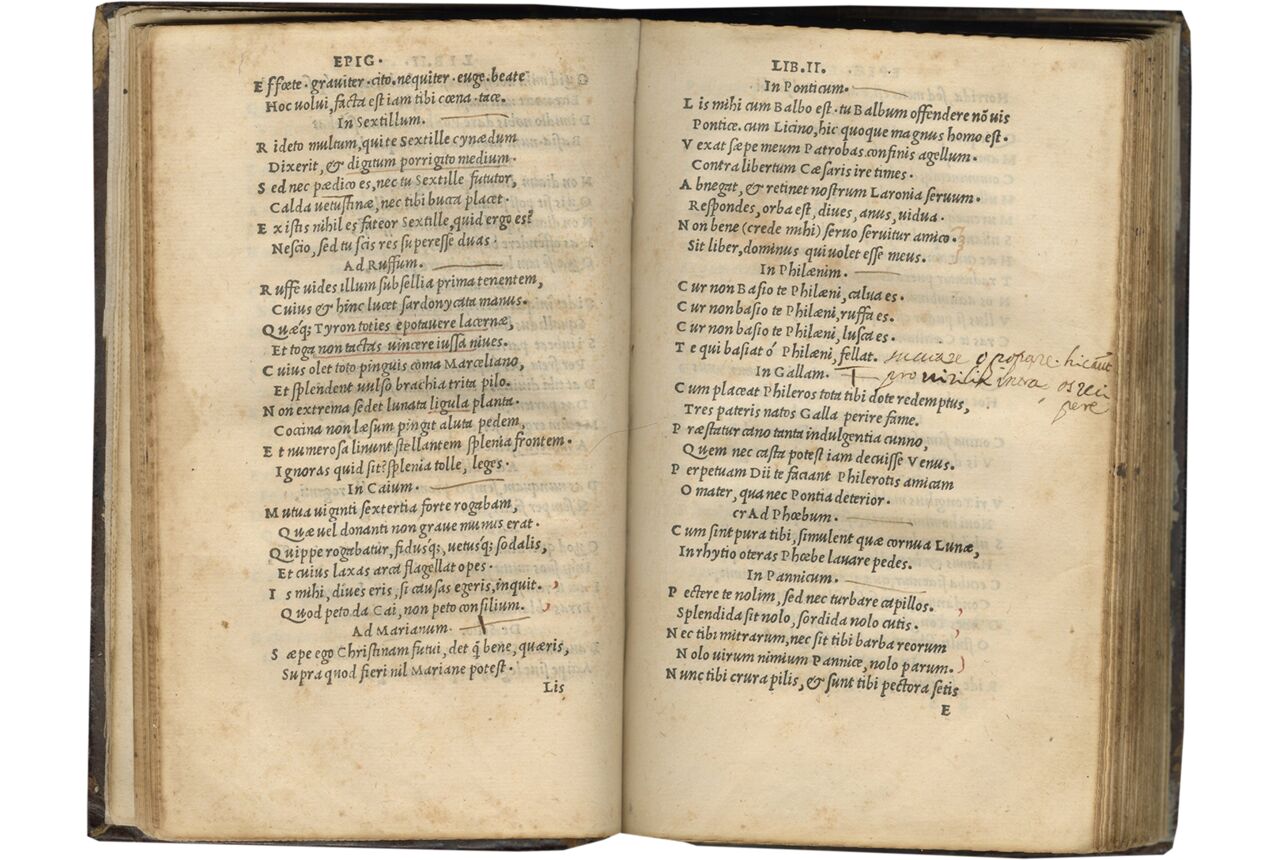 EPIG.
Effœte. graviter. cito. nequiter. euge. beate
Hoc uolui, facta est iam tibi cœna. tace.
In Sextillum.
Rideto multum, qui te Sextille cynædum
Dixerit, & digitum porrigito medium.
Sed nec pædico es, nec tu Sextille fututor,
Calda vetustinæ, nec tibi bucca placet.
Ex istis nihil es fateor Sextille, quid ergo es?
Nescio, sed tu scis res superesse duas.
Ad Ruffum.
Ruffe uides illum subsellia prima tenentem,
Cuius & hinc lucet sardonycata manus.
Quæq; Tyron toties epotauere lacernæ,
Et toga non tactas uincere iussa niues.
Cuius olet toto pinguis coma Marceliano,
Et splendent uulso brachia trita pilo.
Non extrema sedet lunata ligula planta.
Coccina non læsum pingit aluta pedem,
Et numerosa linunt stellantem splenia frontem.
Ignoras quid sit? splenia tolle, leges.
In Caium.
Mutua uiginti sextertia forte rogabam,
Quæ uel donanti non graue munus erat.
Quippe rogabatur, fidusq;, uetusq; sodalis,
Et cuius laxas arca flagellat opes.
Is mihi, diues eris, si causas egeris, inquit.
Quod peto da Cai, non peto consilium.
Ad Marianum.
Sæpe ego Christinam futui, det q̃ bene, quæris,
Supra quod fieri nil Mariane potest.
Lis
LIB. II.
In Ponticum.
Lis mihi cum Balbo est. tu Balbum offendere nõ uis
Pontice. cum Licino, hic quoque magnus homo est.
Vexat sæpe meum Patrobas confinis agellum.
Contra libertum Cæsaris ire times.
Abnegat, & retinet nostrum Laronia seruum.
Respondes, orba est, diues, anus, uidua.
Non bene (crede mihi) seruo seruitur amico.
Sit liber, dominus qui uolet esse meus.
In Philænim.
Cur non Basio te Philæni, calua es.
Cur non basio te Philæni, ruffa es.
Cur non basio te Philæni, lusca es.
Te qui basiat ó Philæni, fellat.
pro virilia intra os reci
pere
In Gallam.
Cum placeat Phileros tota tibi dote redemptus,
Tres pateris natos Galla perire fame.
Præstatur cano tanta indulgentia cunno,
Quem nec casta potest iam decuisse Venus.
Perpetuam Dii te faciant Philerotis amicam
O mater, qua nec Pontia deterior.
cr Ad Phœbum.
Cum sint pura tibi, simulent quæ cornua Lunæ,
In rhytio oteras Phœbe lauare pedes.
In Pannicum.
Pectere te nolim, sed nec turbare capillos.
Splendida sit nolo, sordida nolo cutis.
Nec tibi mitrarum, nec sit tibi barba reorum
Nolo uirum nimium Pannice, nolo parum.
Nunc tibi crura pilis, & sunt tibi pectora setis
E